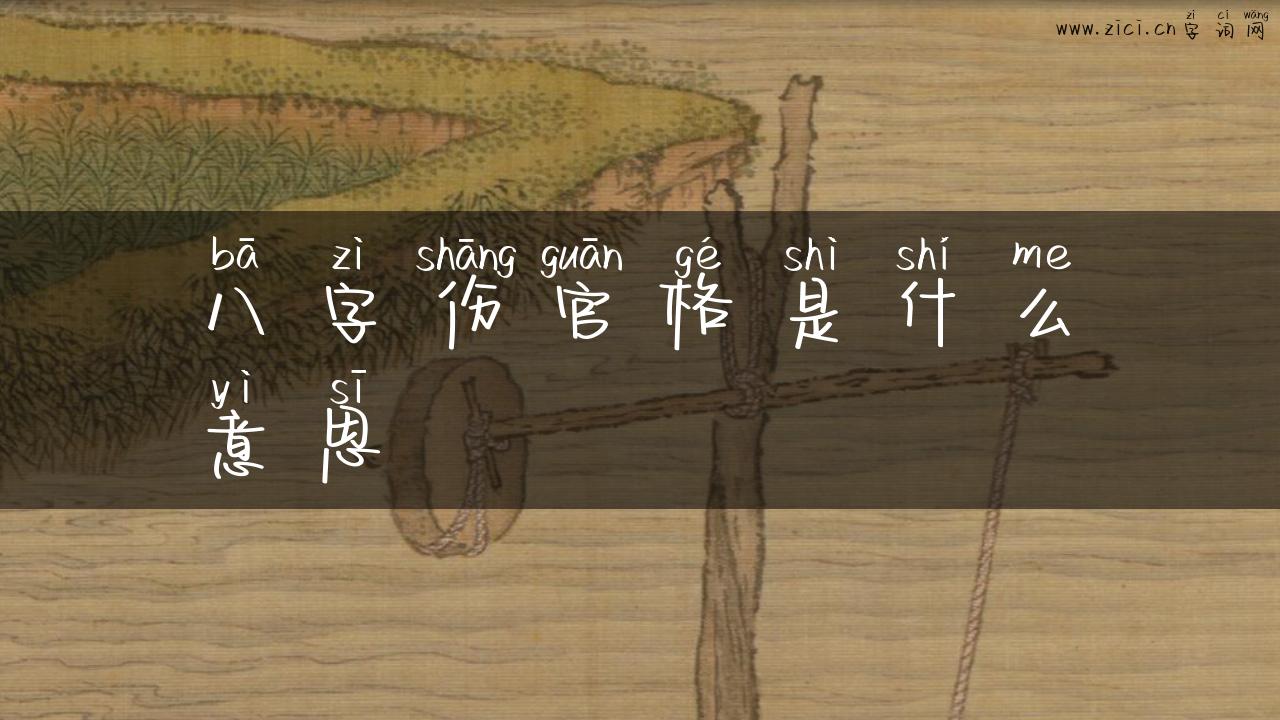 zì cí wǎng
www.zici.cn字词网
bā zì shāng guān gé shì shí me
八字伤官格是什么
yì sī
意思